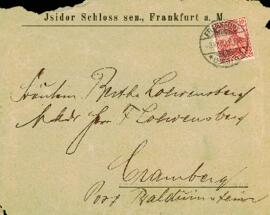 Isidor Schloss sen., Frankfurt a. M.
Fräulein Bertha Loewensberg
Herrn F Loewensberg
Cramberg
Post Balduinstein